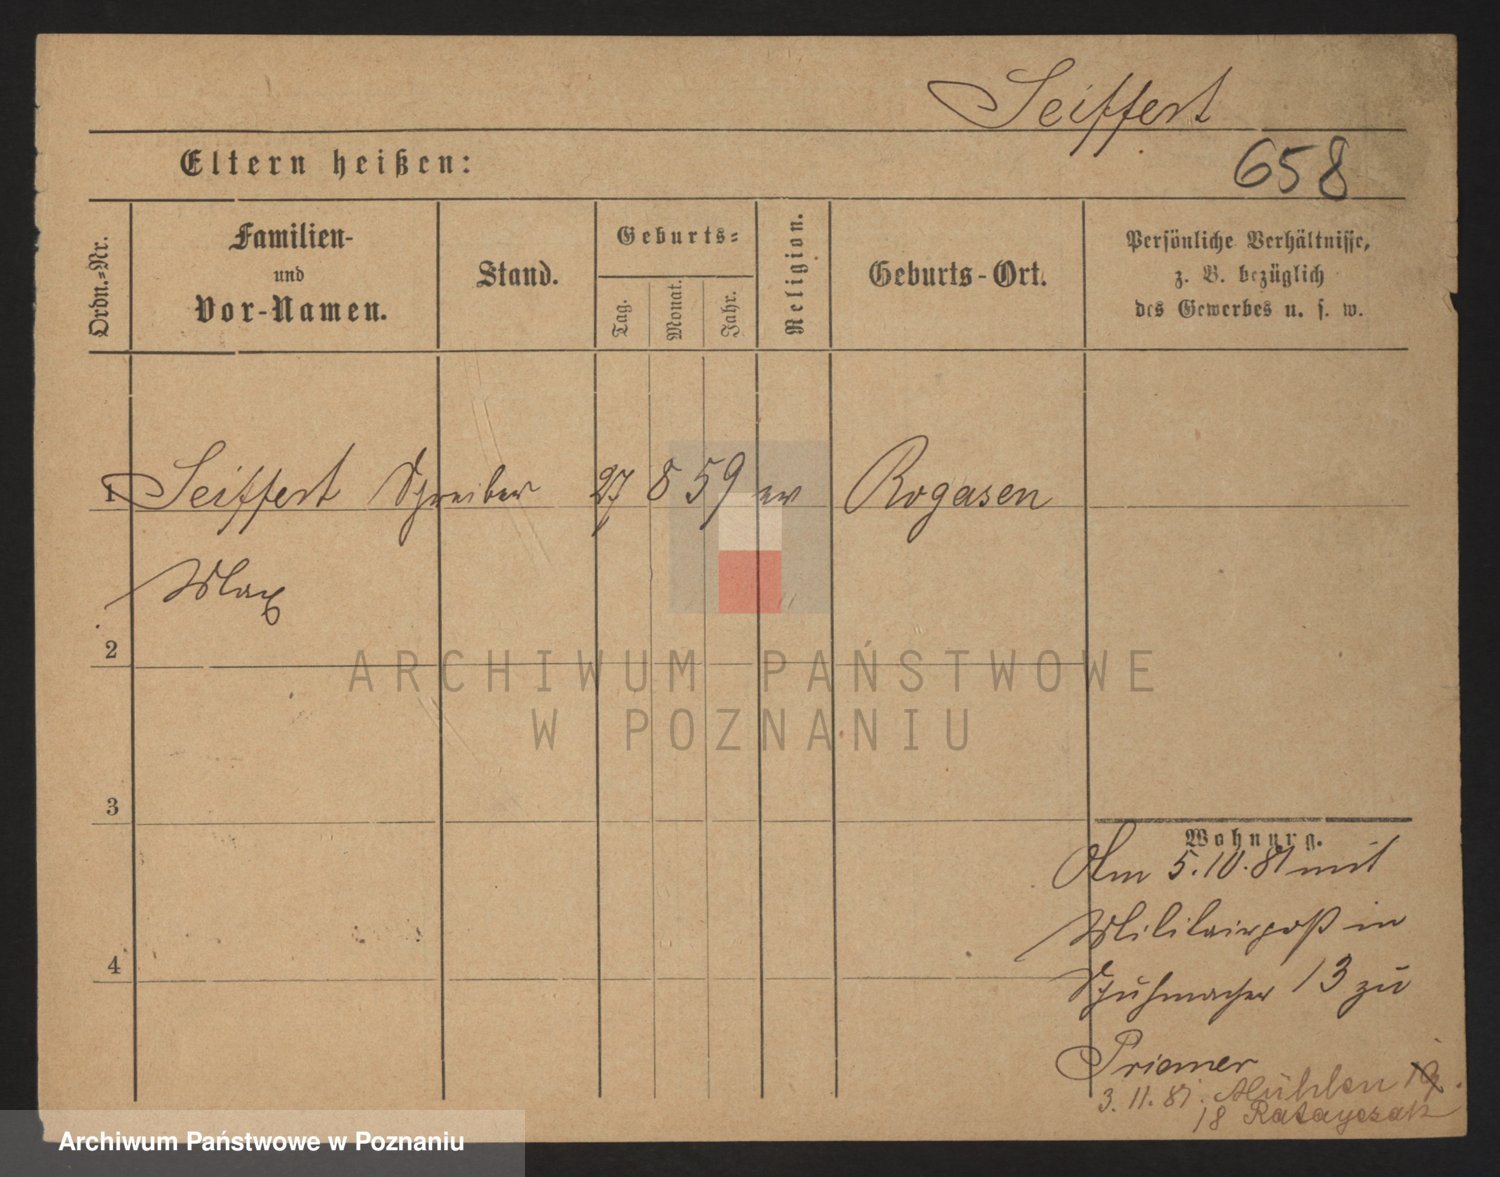 Seiffert
Eltern heißen:
658
Ordn.-Nr.
Familien-
und
Vor-Namen.
Stand.
Geburts-
Tag.
Monat.
Jahr.
Religion.
Geburts-Ort.
Persönliche Verhältnisse,
z. B. bezüglich
des Gewerbes u. s. w.
1 Seiffert Schreiber 27 8 59 ev Rogasen
Max
2
ARCHIWUM PAŃSTWOWE
W POZNANIU
3
4
Wohnung.
Am 5.10.81 mit
Militairpaß in
Schuhmacher 13 zu
Priemer
3.11.81. Mühlen
18 Ratayczak
Archiwum Państwowe w Poznaniu